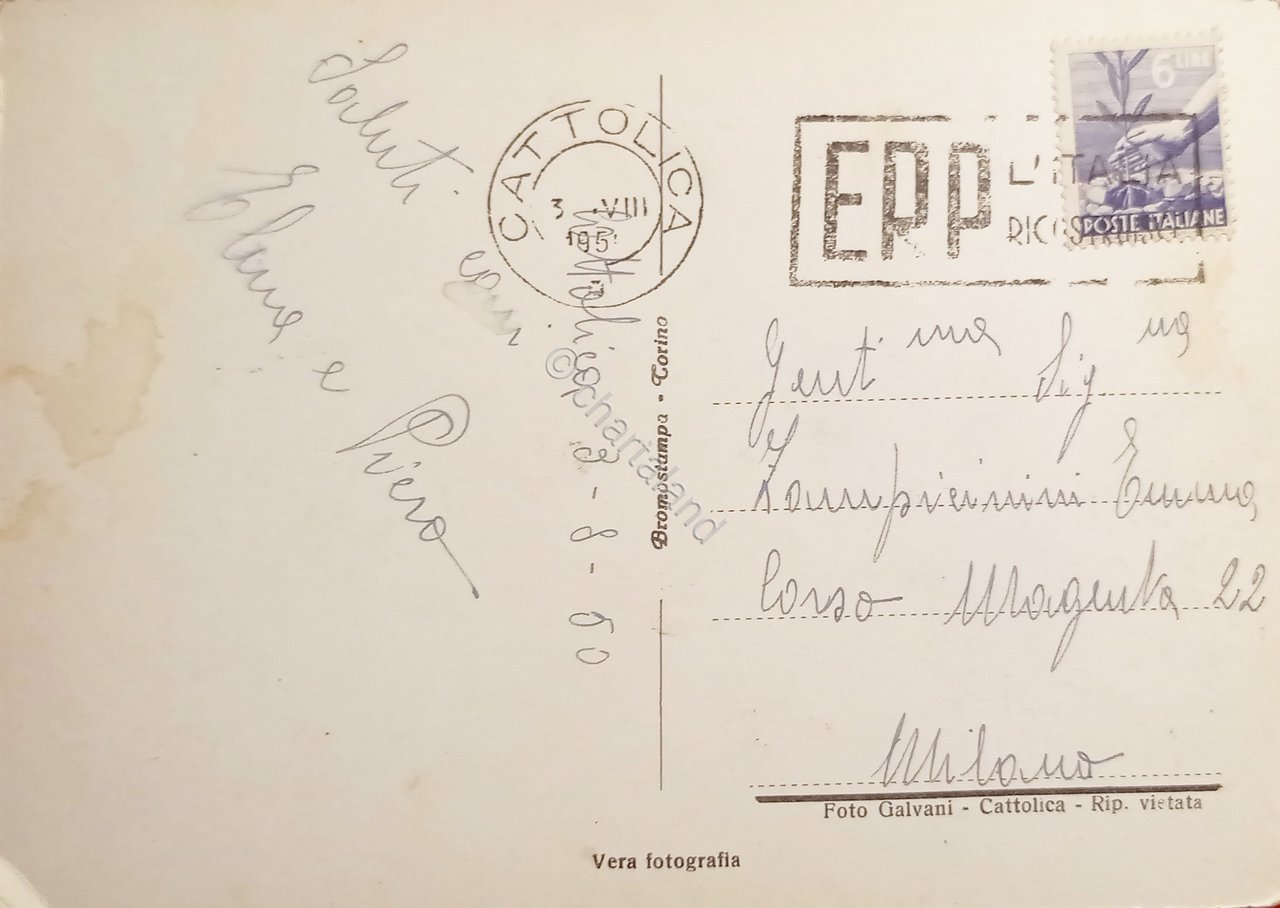 Saluti cari
Elena e Piero
Cattolica 3-8-50
CATTOLICA
3 .VIII
195
ERP
L'ITALIA
6 LIRE
POSTE ITALIANE
Gent ma Sig na
Zampieinini Emma
Corso Magenta 22
Milano
Bromostampa - Torino
© chartaland
Foto Galvani - Cattolica - Rip. vietata
Vera fotografia